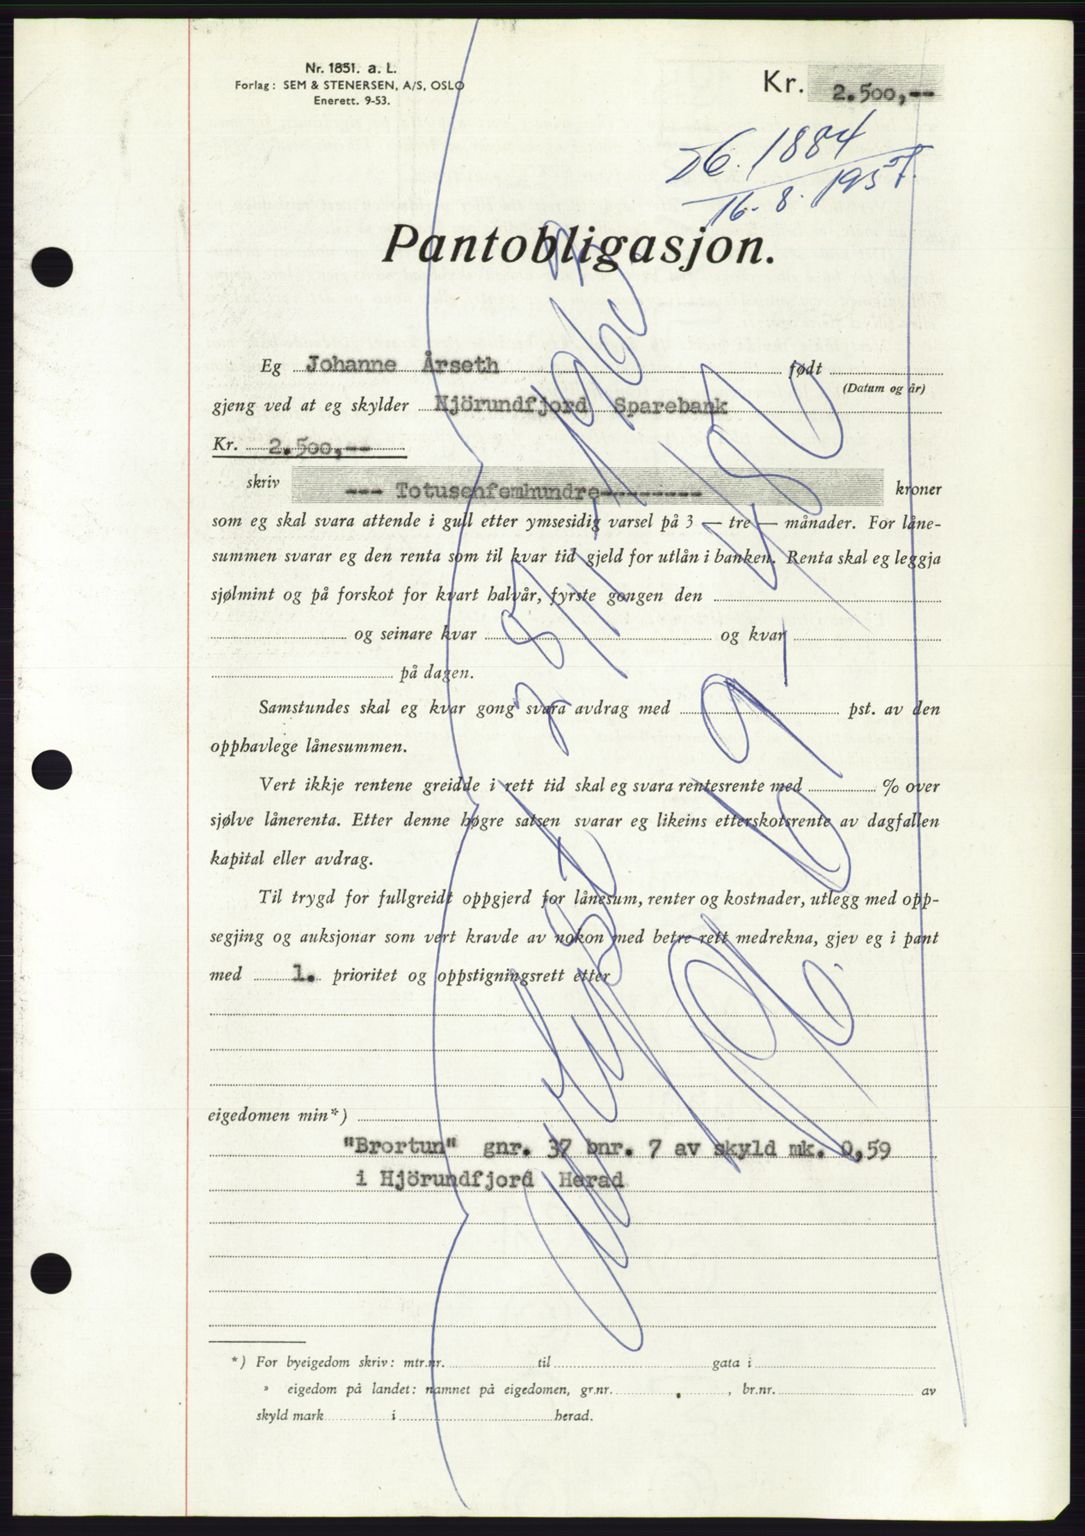 Nr. 1851. a. L.
Forlag: SEM & STENERSEN, A/S, OSLO
Enerett. 9-53.
Kr. 2.500,--
1884
16. 8. 1957.
Pantobligasjon.
Eg Johanne Årseth født
(Datum og år)
gjeng ved at eg skylder Hjörundfjord Sparebank
Kr. 2.500,--
skriv --- Totusenfemhundre-------- kroner
som eg skal svara attende i gull etter ymsesidig varsel på 3 — tre — månader. For låne-
summen svarar eg den renta som til kvar tid gjeld for utlån i banken. Renta skal eg leggja
sjølmint og på forskot for kvart halvår, fyrste gongen den
og seinare kvar og kvar
på dagen.
Samstundes skal eg kvar gong svara avdrag med pst. av den
opphavlege lånesummen.
Vert ikkje rentene greidde i rett tid skal eg svara rentesrente med % over
sjølve lånerenta. Etter denne høgre satsen svarar eg likeins etterskotsrente av dagfallen
kapital eller avdrag.
Til trygd for fullgreidt oppgjerd for lånesum, renter og kostnader, utlegg med opp-
segjing og auksjonar som vert kravde av nokon med betre rett medrekna, gjev eg i pant
med 1. prioritet og oppstigningsrett etter
eigedomen min*)
"Brortun" gnr. 37 bnr. 7 av skyld mk. 0,59
i Hjörundfjord Herad
*) For byeigedom skriv: mtr.nr. til gata i
» eigedom på landet: namnet på eigedomen, gr.nr. , br.nr. av
skyld mark i herad.
Avlyst 28/11-1963